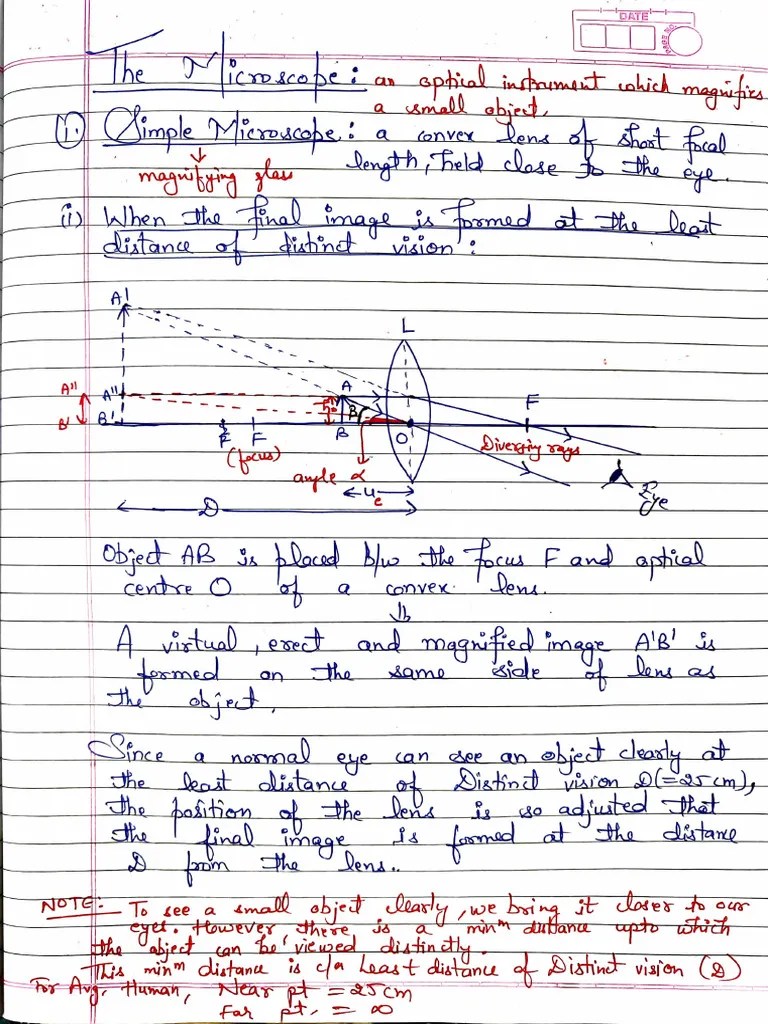 DATE
PAGE NO.
The Microscope: an optical instrument which magnifies
a small object.
(i) Simple Microscope: a convex lens of short focal
length, held close to the eye.
magnifying glass
(i) When the final image is formed at the least
distance of distinct vision:
A'
L
A"
A"
A
F
B'
B'
h
β
F
F
B
O
(focus)
Diverging rays
angle α
u
Eye
D
Object AB is placed b/w the focus F and optical
centre O of a convex lens.
A virtual, erect and magnified image A'B' is
formed on the same side of lens as
the object.
Since a normal eye can see an object clearly at
the least distance of Distinct vision D(=25cm),
the position of the lens is so adjusted that
the final image is formed at the distance
D from the lens..
NOTE:- To see a small object clearly, we bring it closer to our
eyes. However there is a minm distance upto which
the object can be viewed distinctly.
This minm distance is c/a Least distance of Distinct vision (D)
For Avg. Human, Near pt = 25cm
Far pt. = ∞